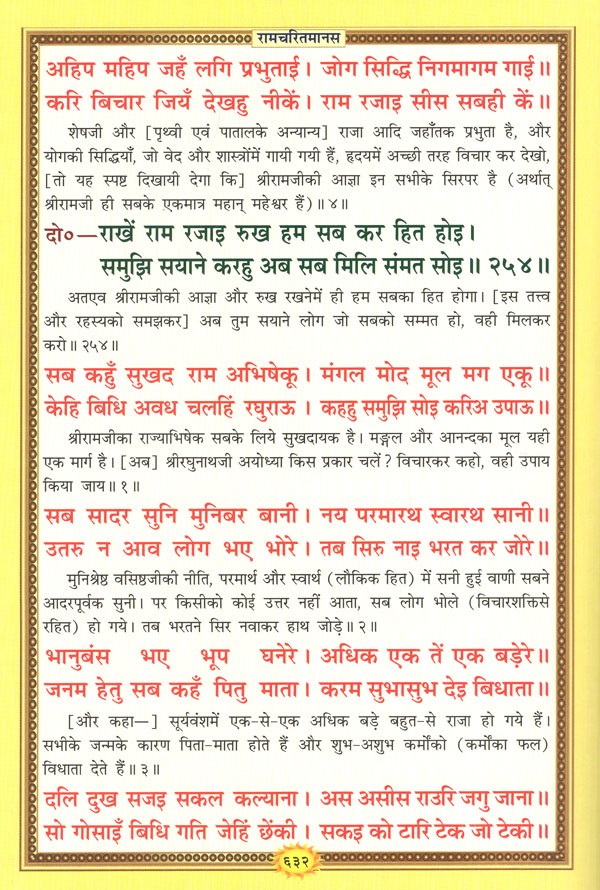 रामचरितमानस
अहिप महिप जहँ लगि प्रभुताई। जोग सिद्धि निगमागम गाई॥
करि बिचार जियँ देखहु नीकें। राम रजाइ सीस सबही कें॥
शेषजी और [पृथ्वी एवं पातालके अन्यान्य] राजा आदि जहाँतक प्रभुता है, और
योगकी सिद्धियाँ, जो वेद और शास्त्रोंमें गायी गयी हैं, हृदयमें अच्छी तरह विचार कर देखो,
[तो यह स्पष्ट दिखायी देगा कि] श्रीरामजीकी आज्ञा इन सभीके सिरपर है (अर्थात्
श्रीरामजी ही सबके एकमात्र महान् महेश्वर हैं)॥४॥
दो०—राखें राम रजाइ रुख हम सब कर हित होइ।
समुझि सयाने करहु अब सब मिलि संमत सोइ॥२५४॥
अतएव श्रीरामजीकी आज्ञा और रुख रखनेमें ही हम सबका हित होगा। [इस तत्त्व
और रहस्यको समझकर] अब तुम सयाने लोग जो सबको सम्मत हो, वही मिलकर
करो॥२५४॥
सब कहुँ सुखद राम अभिषेकू। मंगल मोद मूल मग एकू॥
केहि बिधि अवध चलहिं रघुराऊ। कहहु समुझि सोइ करिअ उपाऊ॥
श्रीरामजीका राज्याभिषेक सबके लिये सुखदायक है। मङ्गल और आनन्दका मूल यही
एक मार्ग है। [अब] श्रीरघुनाथजी अयोध्या किस प्रकार चलें? विचारकर कहो, वही उपाय
किया जाय॥१॥
सब सादर सुनि मुनिबर बानी। नय परमारथ स्वारथ सानी॥
उतरु न आव लोग भए भोरे। तब सिरु नाइ भरत कर जोरे॥
मुनिश्रेष्ठ वसिष्ठजीकी नीति, परमार्थ और स्वार्थ (लौकिक हित) में सनी हुई वाणी सबने
आदरपूर्वक सुनी। पर किसीको कोई उत्तर नहीं आता, सब लोग भोले (विचारशक्तिसे
रहित) हो गये। तब भरतने सिर नवाकर हाथ जोड़े॥२॥
भानुबंस भए भूप घनेरे। अधिक एक तें एक बड़ेरे॥
जनम हेतु सब कहँ पितु माता। करम सुभासुभ देइ बिधाता॥
[और कहा—] सूर्यवंशमें एक-से-एक अधिक बड़े बहुत-से राजा हो गये हैं।
सभीके जन्मके कारण पिता-माता होते हैं और शुभ-अशुभ कर्मोंको (कर्मोंका फल)
विधाता देते हैं॥३॥
दलि दुख सजइ सकल कल्याना। अस असीस राउरि जगु जाना॥
सो गोसाइँ बिधि गति जेहिं छेंकी। सकइ को टारि टेक जो टेकी॥
६३२